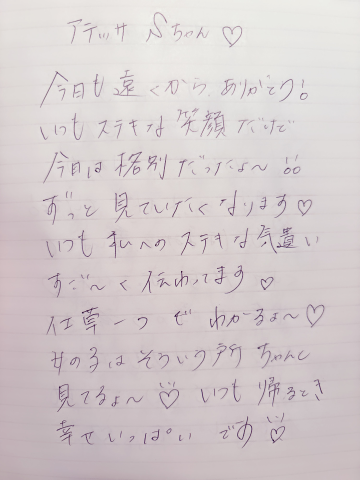 アテッサ Sちゃん♡
今日も遠くから、ありがとう!
いつもステキな笑顔だけど
今日は格別だったよ〜!!
ずっと見ていたくなります♡
いつも私へのステキな気遣い
すご〜く伝わってます♡
仕草一つでわかるよ〜♡
女の子はそういう所ちゃんと
見てるよ〜♡ いつも帰るとき
幸せいっぱいです♡